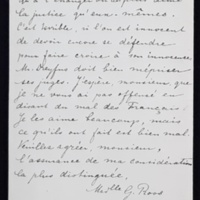 de à l'étranger
la justice qu'eux-mêmes.
C'est terrible, si l'on est innocent
de devoir encore se défendre
pour faire croire à son innocence.
Dreyfus doit bien mépriser
ses juges. J'espère, monsieur, que
je ne vous ai pas offensé en
disant du mal des Français.
Je les aime beaucoup, mais
ce qu'ils ont fait est bien mal.
Veuillez agréer, monsieur,
l'assurance de ma considération
la plus distinguée.
Melle G.